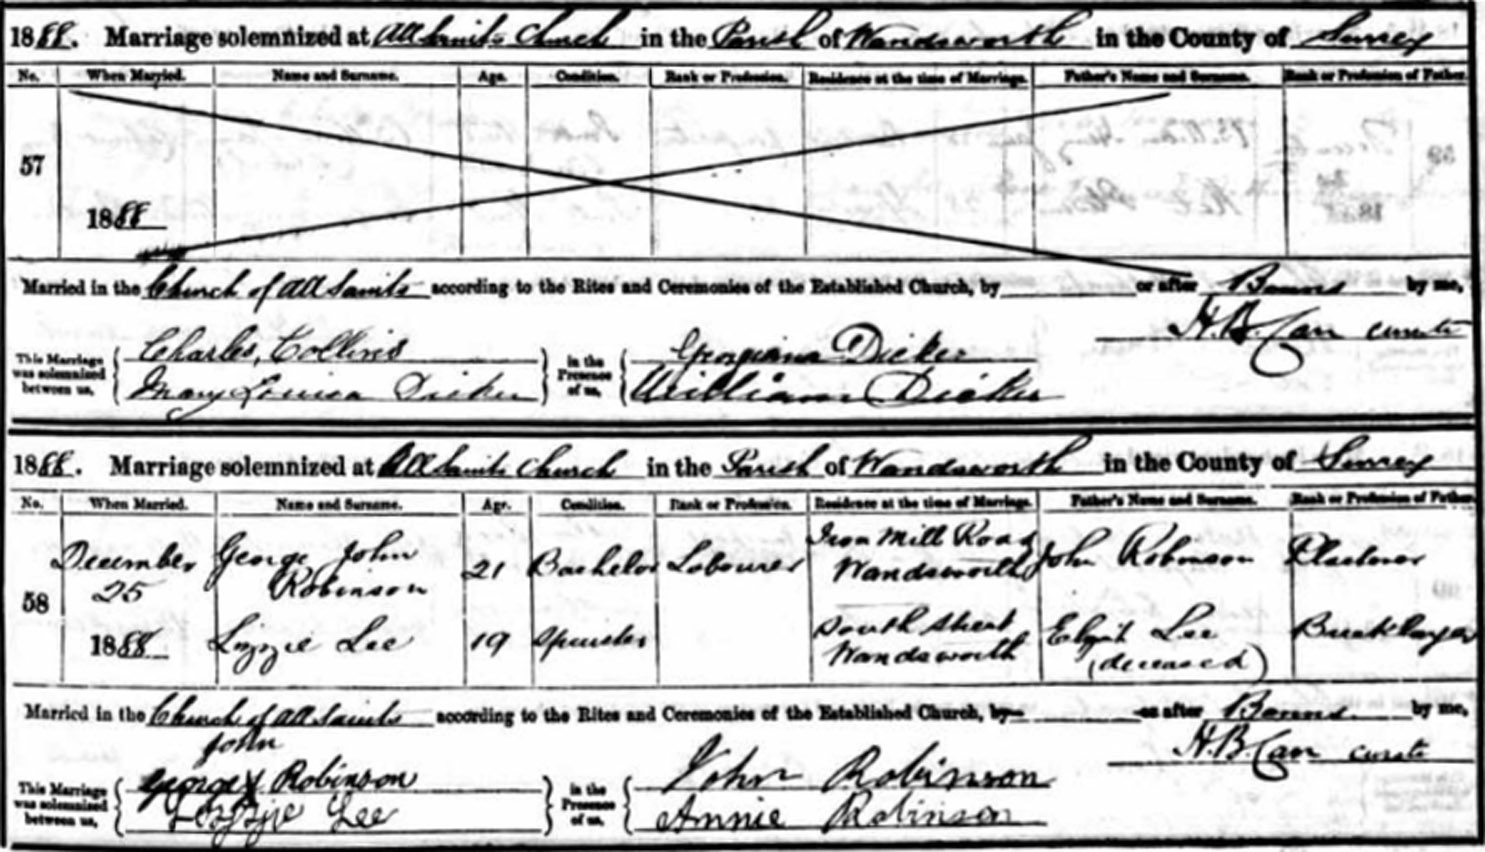 1888. Marriage solemnized at All Saints Church in the Parish of Wandsworth in the County of Surrey
No. When Married. Name and Surname. Age. Condition. Rank or Profession. Residence at the time of Marriage. Father's Name and Surname. Rank or Profession of Father.
57
1888
Married in the Church of All Saints according to the Rites and Ceremonies of the Established Church, by or after Banns by me,
H. B. Carr curate
This Marriage was solemnized between us, Charles Collins in the Presence of us, Georgiana Dicker
Mary Louisa Dicker William Dicker
1888. Marriage solemnized at All Saints Church in the Parish of Wandsworth in the County of Surrey
No. When Married. Name and Surname. Age. Condition. Rank or Profession. Residence at the time of Marriage. Father's Name and Surname. Rank or Profession of Father.
58 December 25 George John Robinson 21 Bachelor Labourer Iron Mill Road Wandsworth John Robinson Plasterer
1888 Lizzie Lee 19 Spinster South Street Wandsworth Lee (deceased) Bricklayer
Married in the Church of All Saints according to the Rites and Ceremonies of the Established Church, by or after Banns by me,
H. B. Carr curate
John
This Marriage was solemnized between us, George Robinson in the Presence of us, John Robinson
Lizzie Lee Annie Robinson